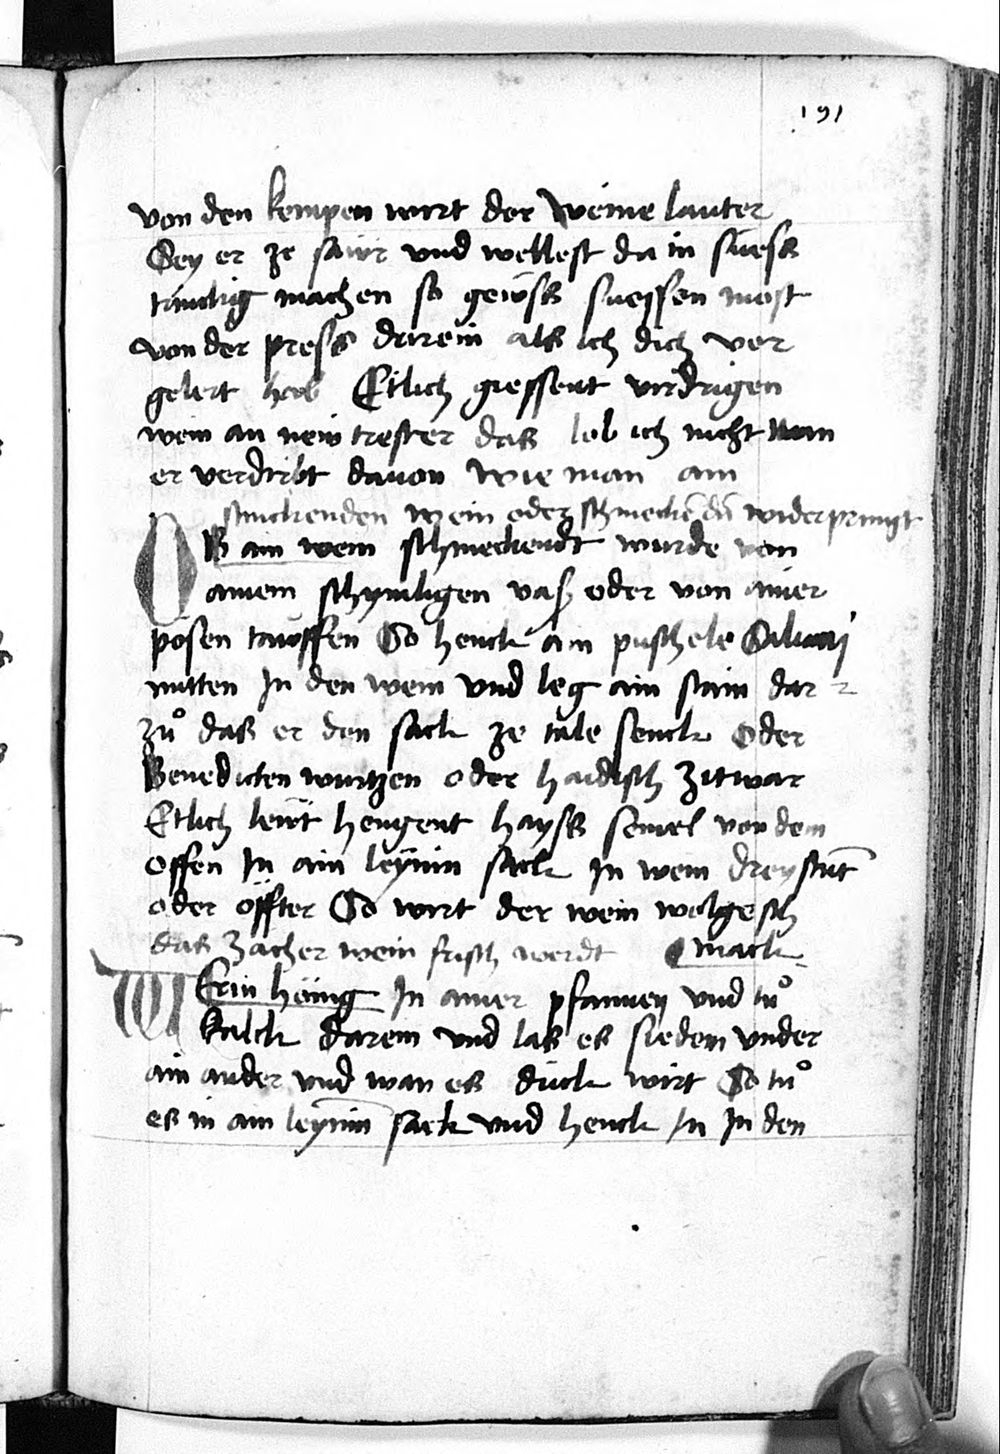 191
von den kempen wirt der weine lauter
Sey er ze sawr vnd wellest du in suess
machen so gewss suessen most
von der press darein als ich dich vor
gelert hab Etlich giessent
wein an new trester das lob ich nicht wan
er verdirbt dauon Wie man ain
stinckenden wein oder schmeckēdn̄ widerpringt
OB ain wein schmeckendt wurde von
ainem schymligen vas oder von ainer
pösen So henck ain puschele Saluaj
mitten In den wein vnd leg ain stain dar
zů das er den sack ze tale senck Oder
Benedicten wurtzen oder haidisch Zitwar
Etlich lewt hengent hayss semel von dem
offen In ain leynin sack In wein drey stūt
oder öffter So wirt der wein wolgesch
das Zacher wein frisch werdt mack
In ainer pfannen vnd tů
kalck darein vnd las es sieden vnder
ain ander vnd wan es dick wirt So tů
es in ain leynin sack vnd henck In In den